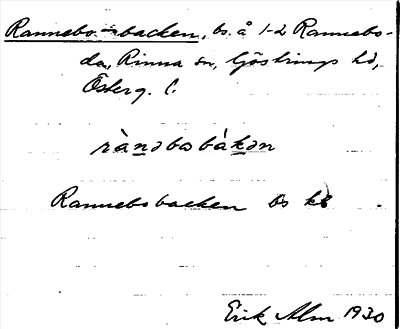 Rannebo-backen, bs. å 1-2 Rannebo-
da, Rinna sn, Göstrings hd,
Österg. l.
rànəbobàkən
Rannebobacken bs kb
Erik Alm 1930